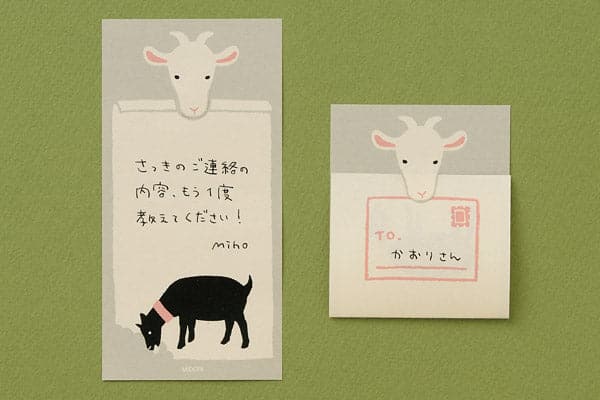 さっきのご連絡の
内容、もう1度
教えてください!
miho
MIDORI
TO.
かおりさん